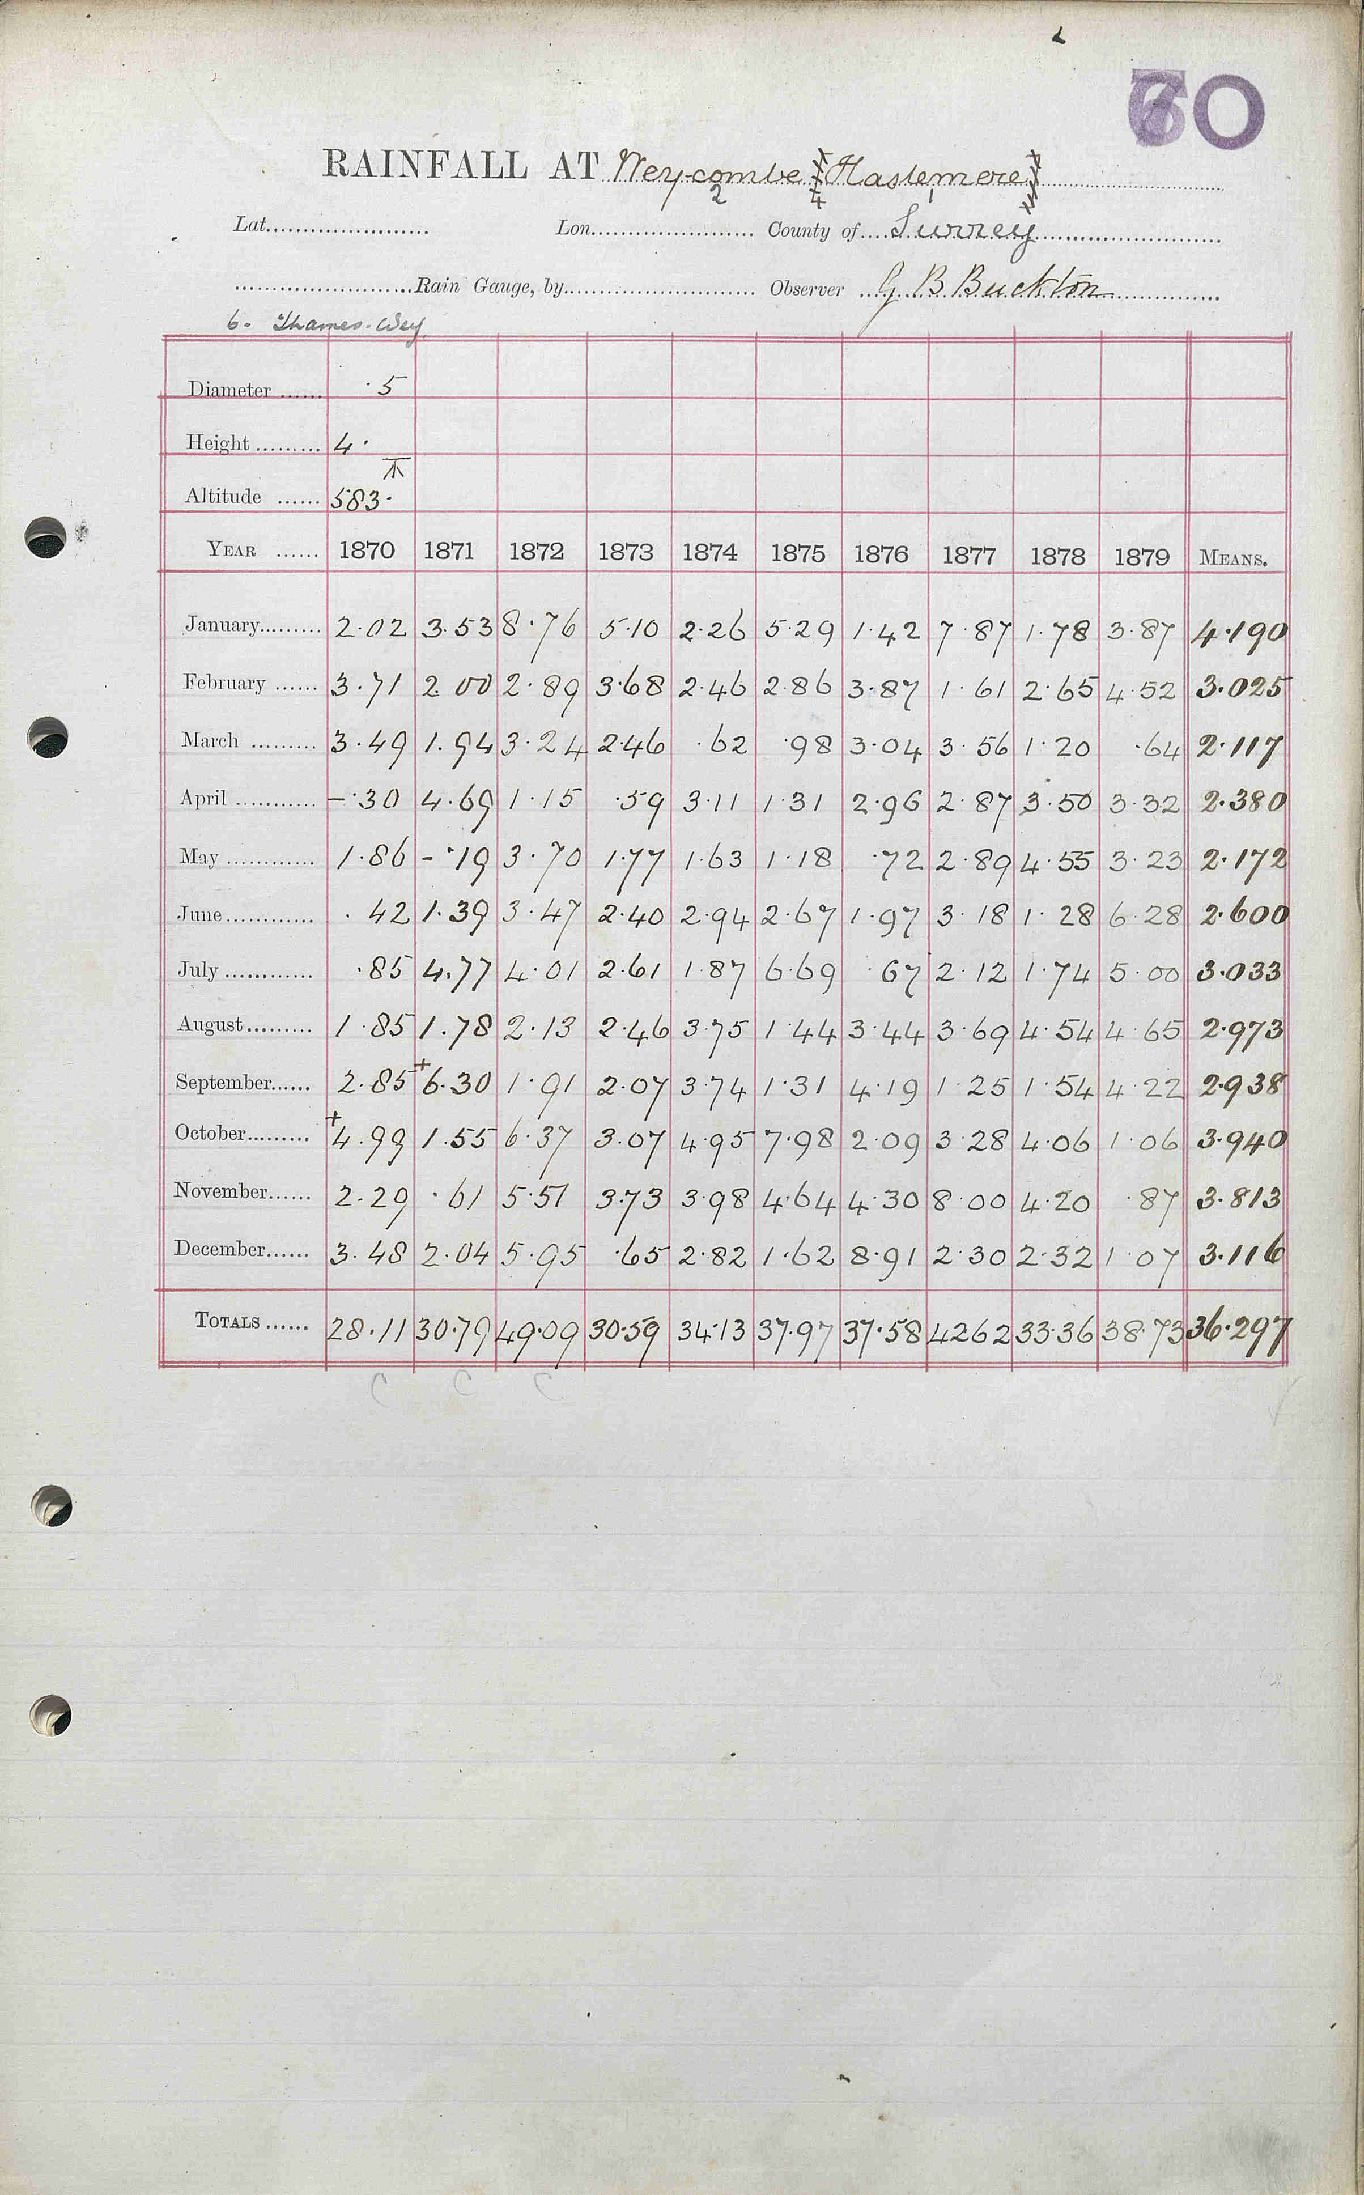 60
RAINFALL AT Weycombe Haslemere
2 4 1
Lat. Lon. County of Surrey
Rain Gauge, by Observer G B Buckton
6. Thames-Wey
Diameter ·5
Height 4·
Altitude 583·
YEAR 1870 1871 1872 1873 1874 1875 1876 1877 1878 1879 MEANS.
January 2·02 3·53 8·76 5·10 2·26 5·29 1·42 7·87 1·78 3·87 4·190
February 3·71 2·00 2·89 3·68 2·46 2·86 3·87 1·61 2·65 4·52 3·025
March 3·49 1·94 3·24 2·46 ·62 ·98 3·04 3·56 1·20 ·64 2·117
April -·30 4·69 1·15 ·59 3·11 1·31 2·96 2·87 3·50 3·32 2·380
May 1·86 -·19 3·70 1·77 1·63 1·18 ·72 2·89 4·55 3·23 2·172
June ·42 1·39 3·47 2·40 2·94 2·67 1·97 3·18 1·28 6·28 2·600
July ·85 4·77 4·01 2·61 1·87 6·69 ·67 2·12 1·74 5·00 3·033
August 1·85 1·78 2·13 2·46 3·75 1·44 3·44 3·69 4·54 4·65 2·973
September 2·85 +6·30 1·91 2·07 3·74 1·31 4·19 1·25 1·54 4·22 2·938
October +4·99 1·55 6·37 3·07 4·95 7·98 2·09 3·28 4·06 1·06 3·940
November 2·29 ·61 5·51 3·73 3·98 4·64 4·30 8·00 4·20 ·87 3·813
December 3·48 2·04 5·95 ·65 2·82 1·62 8·91 2·30 2·32 1·07 3·116
TOTALS 28·11 30·79 49·09 30·59 34·13 37·97 37·58 42·62 33·36 38·73 36·297
C C C